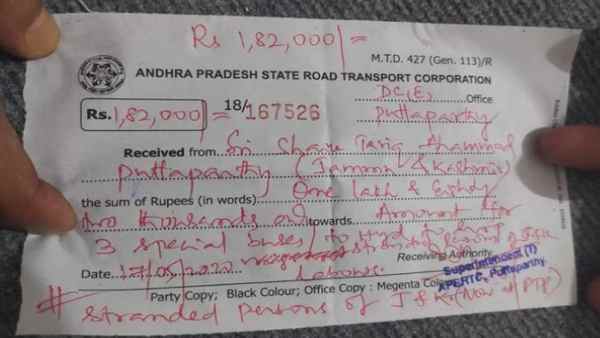 Rs 1,82,000/=
M.T.D. 427 (Gen. 113)/R
ANDHRA PRADESH STATE ROAD TRANSPORT CORPORATION
Rs. 1,82,000/= 18/167526 DC(E) Office
Puttaparthy
Received from Sri Shaik Tariq Ahammad
Puttaparthy (Jammu & Kashmir)
the sum of Rupees (in words) One lakh & Eighty
two thousands only towards Amount for
3 special buses to Hyd to
stranded
Receiving Authority
Date 17/05/2020 Labours
Superintendent (T)
APSRTC, Puttaparthy
Party Copy; Black Colour; Office Copy : Megenta
# stranded persons of J & K (Now at PTP)